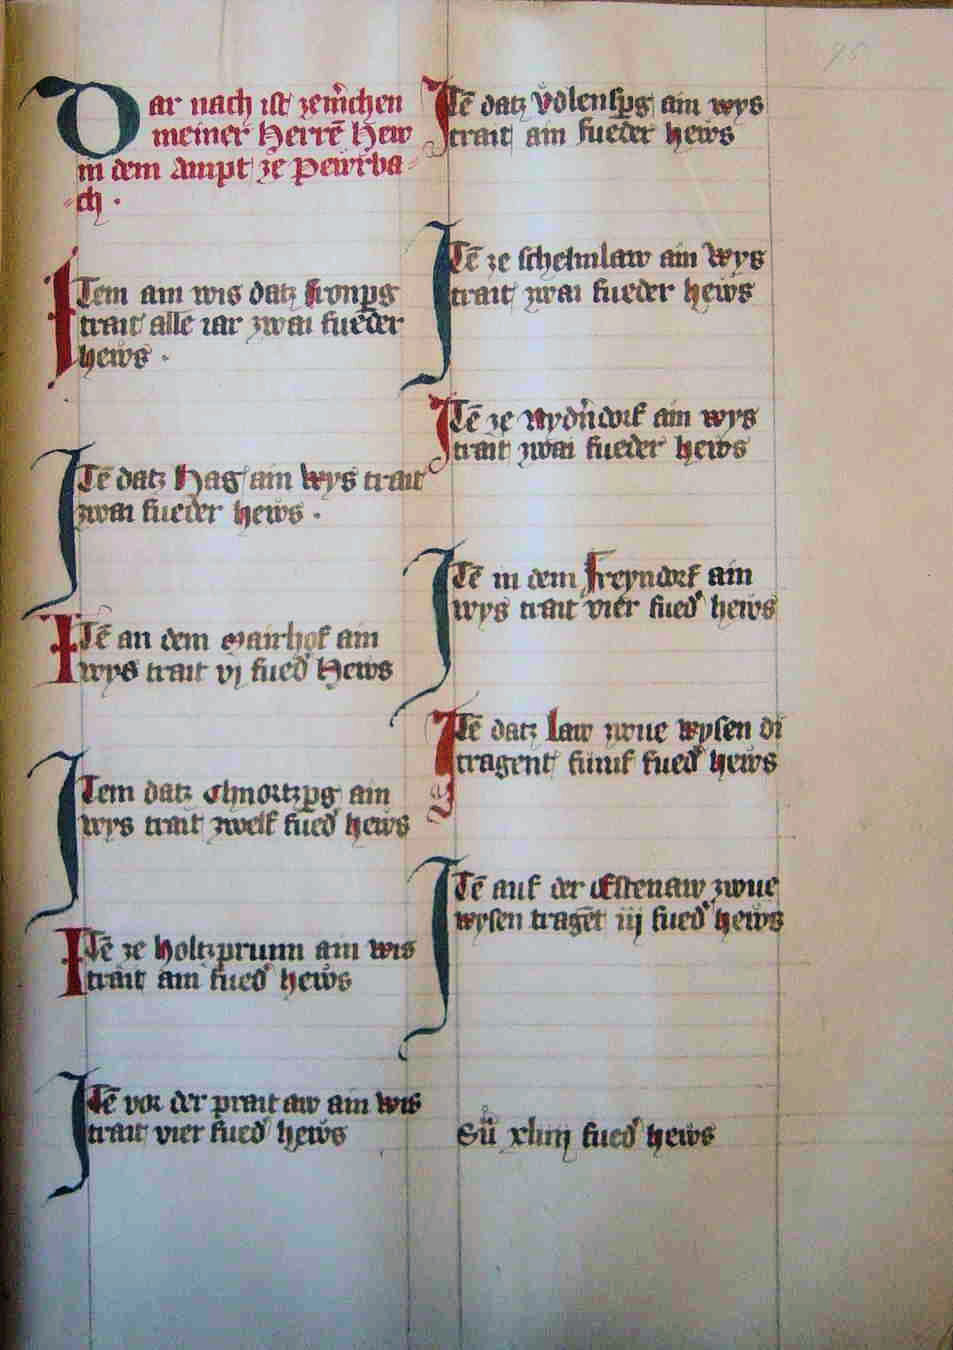 Dar nach ist zem̄chen
meiner Herrē Hew
in dem Ampt ze Pewrba⸗
⸗ch .
Item ain wis datz fronpg
trait alle iar zwai fueder
hews .
Itē datz Hag ain wys trait
zwai fueder hews .
Itē an dem Mairhof ain
wys trait vj fued̕ Hews
Item datz Chnortzpg ain
wys trait zwelf fued̕ hews
Itē ze holtzprunn ain wis
trait ain fued̕ hews
Itē vor der prait aw ain wis
trait vier fued̕ hews
Itē datz vͦdlenspg ain wys
trait ain fueder hews
Itē ze schelmlaw ain wys
trait zwai fueder hews
Itē ze Nydn̄dorf ain wys
trait zwai fueder hews
Itē in dem freyndorf ain
wys trait vier fued̕ hews
Itē datz law zwue wysen di
tragent fumf fued̕ hews
Itē auf der Estenaw zwue
wysen tragēt iij fued̕ hews
Sū xliiij fued̕ hews